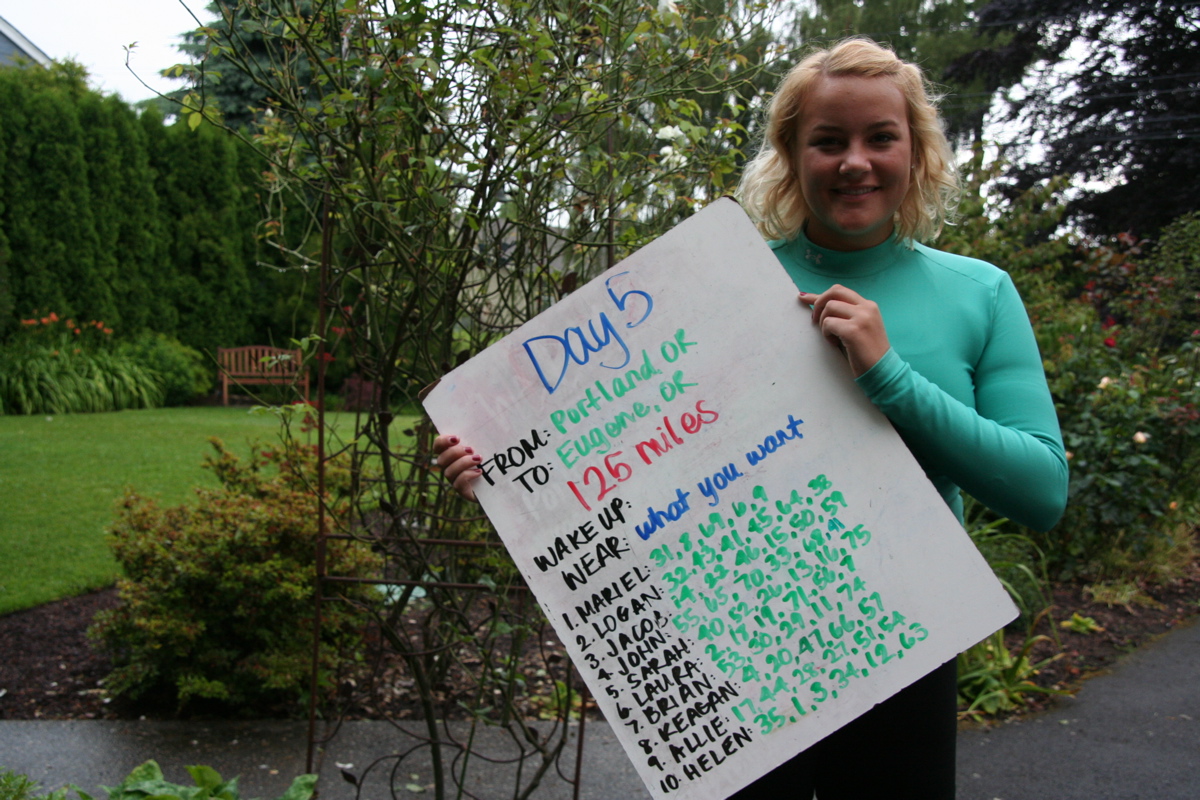 Day 5
FROM: Portland, OR
TO: Eugene, OR
125 miles
WAKE UP:
WEAR: what you want
1. MARIEL: 31, 8, 69, 6, 9
2. LOGAN: 32, 43, 41, 45, 64, 38
3. JACOB: 14, 22, 46, 15, 50, 59
4. JOHN: 55, 65, 70, 33, 68,
5. SARAH: 40, 52, 26, 13, 16, 75
6. LAURA: 2, 18, 19, 71, 56, 7
7. BRIAN: 53, 60, 29, 11, 74
8. KEAGAN: 4, 20, 47, 66, 57
9. ALLIE: 17, 44, 28, 27, 51, 54
10. HELEN: 35, 1, 3, 34, 12, 63